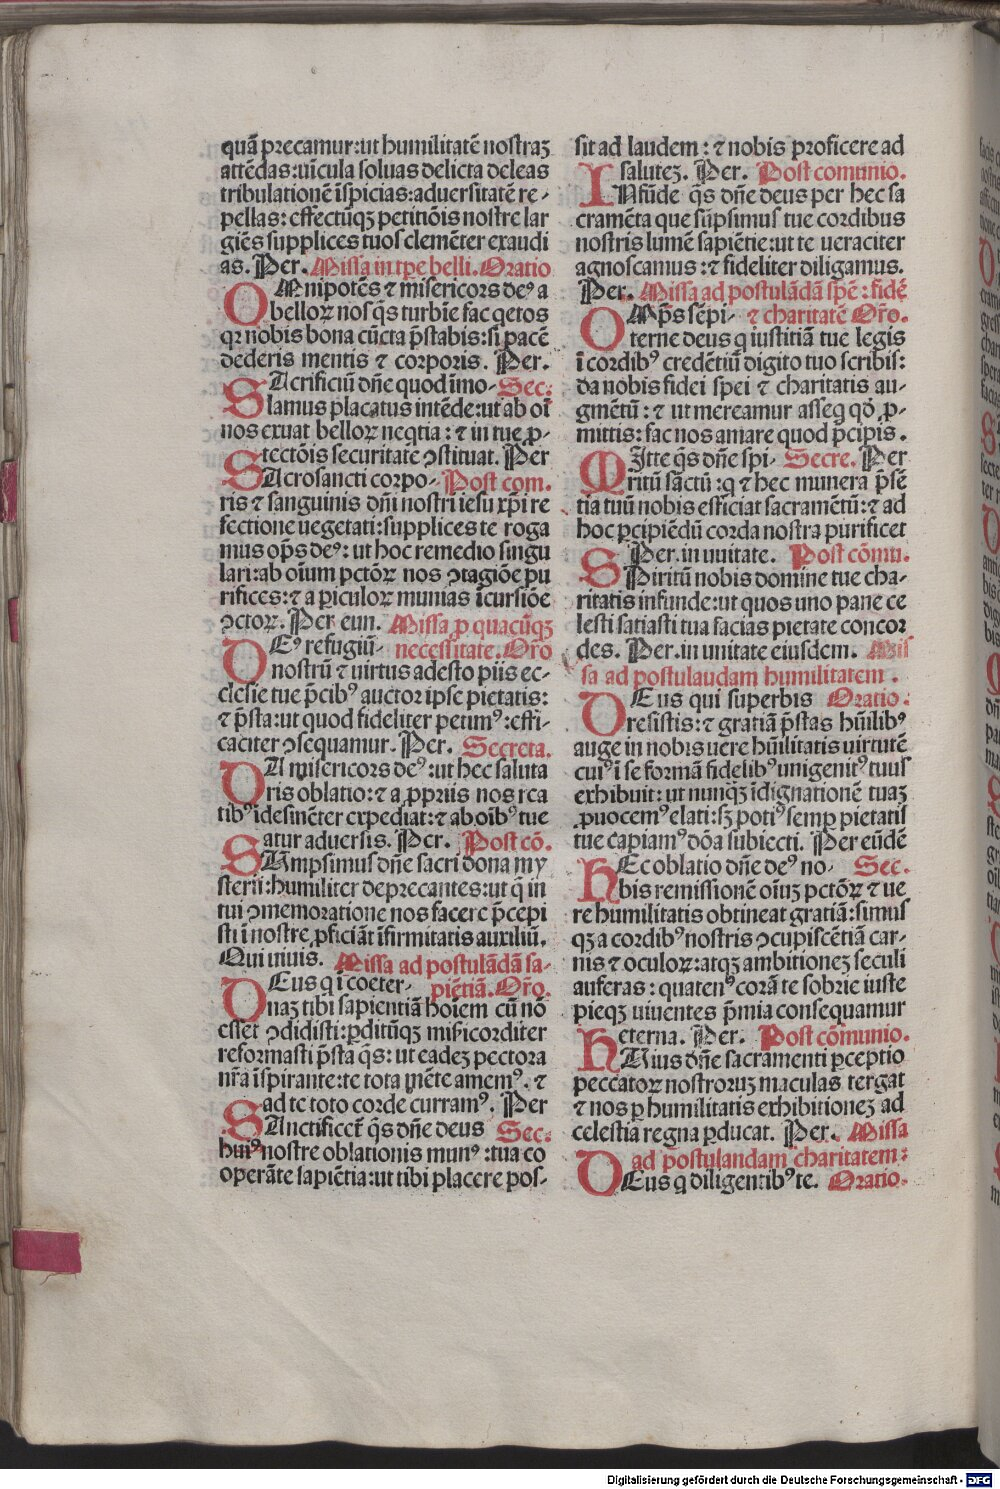 quā precamur: ut humilitatē nostraꝫ
attēdas: uīcula soluas delicta deleas
tribulationē īspicias: aduersitatē re-
pellas: effectūqꝫ petitiōis nostre lar
giēs supplices tuos clemēter exaudi
as. Per. Missa in tpe belli. Oratio
OMnipotēs ⁊ misericors deꝰ a
belloꝝ nos q̄s turbie fac qetos
qꝛ nobis bona cūcta p̄stabis: si pacē
dederis mentis ⁊ corporis. Per.
SAcrificiū dn̄e quod īmo- Sec:
lamus placatus intēde: ut ab oī
nos exuat belloꝝ neqtia: ⁊ in tue ꝓ-
tectōis securitate ꝯstituat. Per
SAcrosancti corpo- Post com.
ris ⁊ sanguinis dn̄i nostri iesu xp̄i re
fectione uegetati: supplices te roga
mus op̄s deꝰ: ut hoc remedio singu
lari: ab oīum pctōꝝ nos ꝯtagiōe pu
rifices: ⁊ a ꝑiculoꝝ munias īcursiōe
ꝯctoꝝ. Per eun. Missa ꝑ quacūqꝫ
DEꝰ refugiū necessitate. Or̄o
nostrū ⁊ uirtus adesto piis ec-
clesie tue p̄cibꝰ auctor ipse pietatis:
⁊ p̄sta: ut quod fideliter petimꝰ: effi-
caciter ꝯsequamur. Per. Secreta.
DA misericors deꝰ: ut hec saluta
ris oblatio: ⁊ a ꝓpriis nos rea
tibꝰ idesinēter expediat: ⁊ ab oībꝰ tue
atur aduersis. Per. Post cō.
SVmpsimus dn̄e sacri dona my
sterii: humiliter deprecantes: ut q̄ in
tui ꝯmemoratione nos facere p̄cepi
sti ī nostre ꝓficiāt īfirmitatis auxiliū.
Qui uiuis. Missa ad postulādā sa-
DEus q ī coeter- piētiā. Or̄o.
naꝫ tibi sapientiā hoīem cū nō
esset ꝯdidisti: ꝑditūqꝫ mis̄icorditer
reformasti p̄sta q̄s: ut eadeꝫ pectora
nr̄a īspirante: te tota mēte amemꝰ. ⁊
ad te toto corde curramꝰ. Per
SAnctificet q̄s dn̄e deus Sec:
huiꝰ nostre oblationis munꝰ: tua co
operāte sapiētia: ut tibi placere pos-
sit ad laudem: ⁊ nobis proficere ad
saluteꝫ. Per. Post comunio.
INfūde q̄s dn̄e deus per hec sa
cramēta que sūpsimus tue cordibus
nostris lumē sapiētie: ut te ueraciter
agnoscamus: ⁊ fideliter diligamus.
Per. Missa ad postulādā spē: fidē
OMp̄s sēpi- ⁊ charitatē Or̄o.
terne deus q iustitiā tue legis
ī cordibꝰ credētiū digito tuo scribis:
da nobis fidei spei ⁊ charitatis au-
gmētū: ⁊ ut mereamur asseq qd̄ ꝓ-
mittis: fac nos amare quod p̄cipis.
MItte q̄s dn̄e spi- Secre. Per
ritū sāctū: q ⁊ hec munera p̄sē
tia tuū nobis efficiat sacramētū: ⁊ ad
hoc ꝑcipiēdū corda nostra purificet
Per. in unitate. Post cōmu.
SPiritū nobis domine tue cha-
ritatis infunde: ut quos uno pane ce
lesti satiasti tua facias pietate concor
des. Per. in unitate eiusdem. Mis
sa ad postulandam humilitatem.
DEus qui superbis Oratio.
resistis: ⁊ gratiā p̄stas hūilibꝰ
auge in nobis uere hūilitatis uirtutē
cuiꝰ ī se formā fidelibꝰ unigenitꝰ tuus
exhibuit: ut nunqꝫ īdignationē tuaꝫ
ꝓuocemꝰ elati: sꝫ potiꝰ semꝑ pietatis
tue capiamꝰ dōa subiecti. Per eūdē
HEc oblatio dn̄e deꝰ no- Sec.
bis remissionē oīuꝫ pctōꝝ ⁊ ue
re humilitatis obtineat gratiā: simus
qꝫ a cordibꝰ nostris ꝯcupiscētiā car-
nis ⁊ oculoꝝ: atqꝫ ambitioneꝫ seculi
auferas: quatenꝰ corā te sobrie iuste
pieqꝫ uiuentes p̄mia consequamur
eterna. Per. Post cōmunio.
HVius dn̄e sacramenti ꝑceptio
peccatoꝝ nostroruꝫ maculas tergat
⁊ nos ꝑ humilitatis exhibitioneꝫ ad
celestia regna ꝑducat. Per. Missa
ad postulandam charitatem:
DEus q diligentibꝰ te. Oratio.
Digitalisierung gefördert durch die Deutsche Forschungsgemeinschaft - DFG